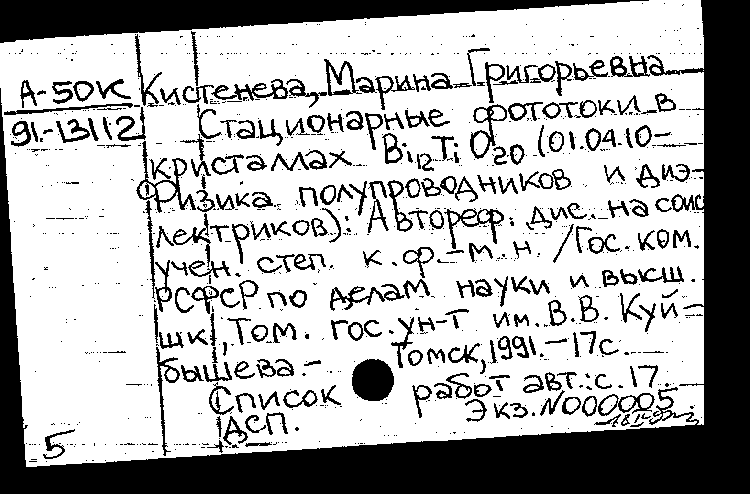 А-50К Кистенева, Марина Григорьевна
91-13112 Стационарные фототоки в
кристаллах Bi12TiO20 (01.04.10-
Физика полупроводников и диэ-
лектриков): Автореф. дис. на соис
учен. степ. к.ф.-м.н. /Гос. ком.
РСФСР по делам науки и высш.
шк., Том. гос. ун-т им. В.В. Куй-
бышева.- Томск, 1991.-17с.
Список работ авт.: с.17.
ДСП. Экз. N000005.
5